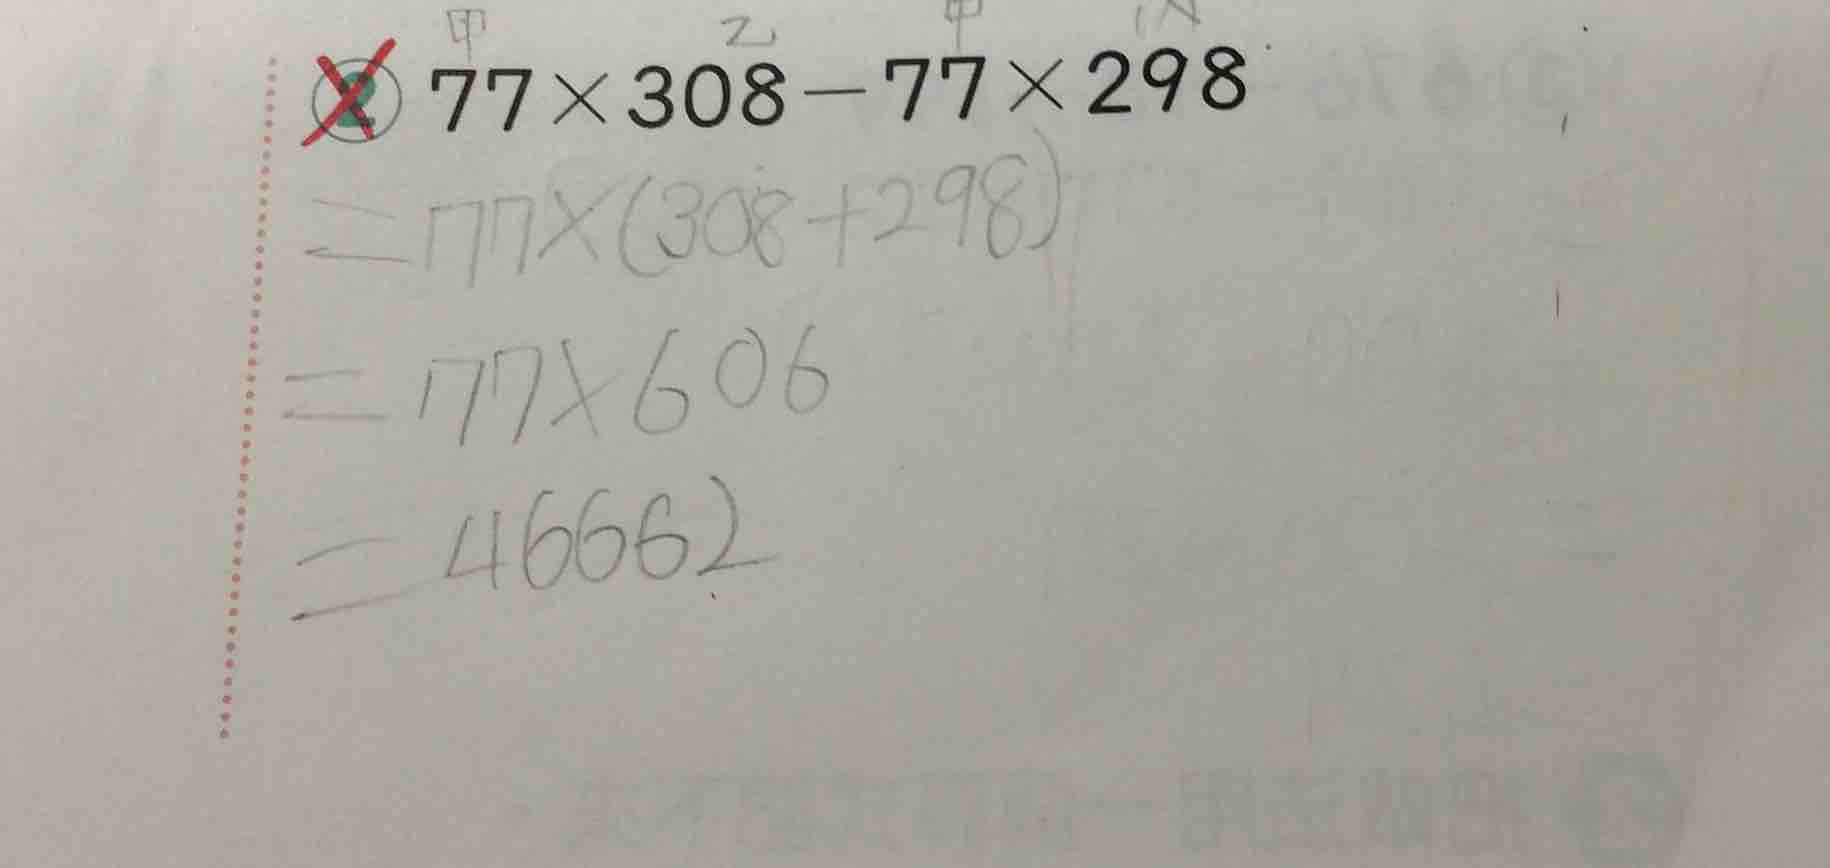 甲 乙 甲
2 77×308－77×298
=77×(308+298)
=77×606
=46662